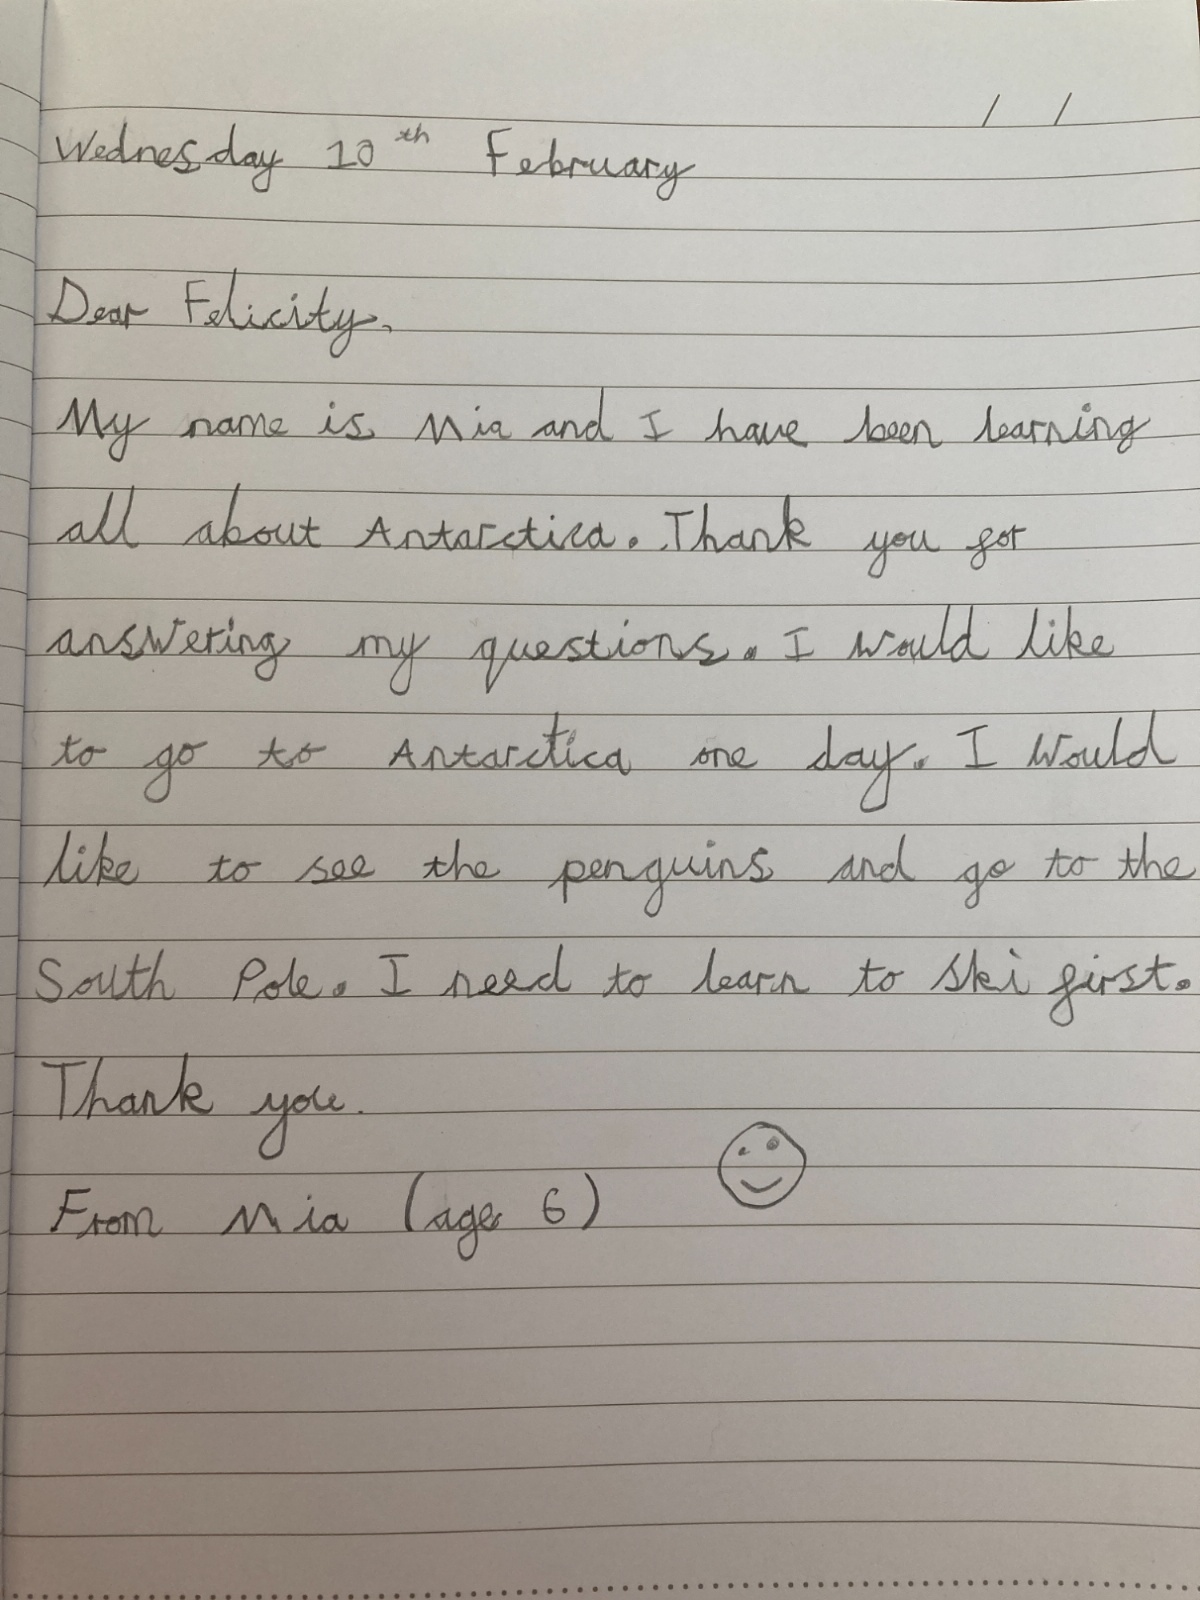 / /
Wednesday 10th February
Dear Felicity,
My name is Mia and I have been learning
all about Antarctica. Thank you for
answering my questions. I would like
to go to Antarctica one day. I would
like to see the penguins and go to the
South Pole. I need to learn to ski first.
Thank you.
From Mia (age 6)